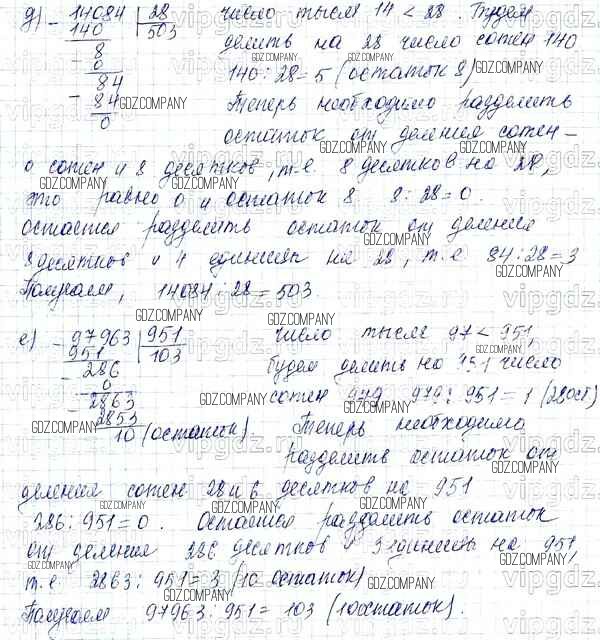 д) - 14084 | 28
140 503
- 8
0
- 84
84
0
число тысяч 14 < 28. Будем
делить на 28 число сотен 140
140 : 28 = 5 (остаток 8)
Теперь необходимо разделить
остаток от деления сотен -
0 сотен и 8 десятков, т.е. 8 десятков на 28,
это равно 0 и остаток 8 8 : 28 = 0.
остается разделить остаток от деления
8 десятков и 4 единицы на 28, т.е. 84 : 28 = 3
Получаем, 14084 : 28 = 503.
е) - 97963 | 951
951 103
- 286
0
- 2863
2853
10 (остаток).
число тысяч 97 < 951,
будем делить на 951 число
сотен 979 979 : 951 = 1 (28 ост)
Теперь необходимо
разделить остаток от
деления сотен 28 и 6 десятков на 951
286 : 951 = 0. Остается разделить остаток
от деления 286 десятков и 3 единиц на 951,
т.е. 2863 : 951 = 3 (10 остаток)
Получаем 97963 : 951 = 103 (10 остаток).
GDZ.COMPANY
vipgdz.ru